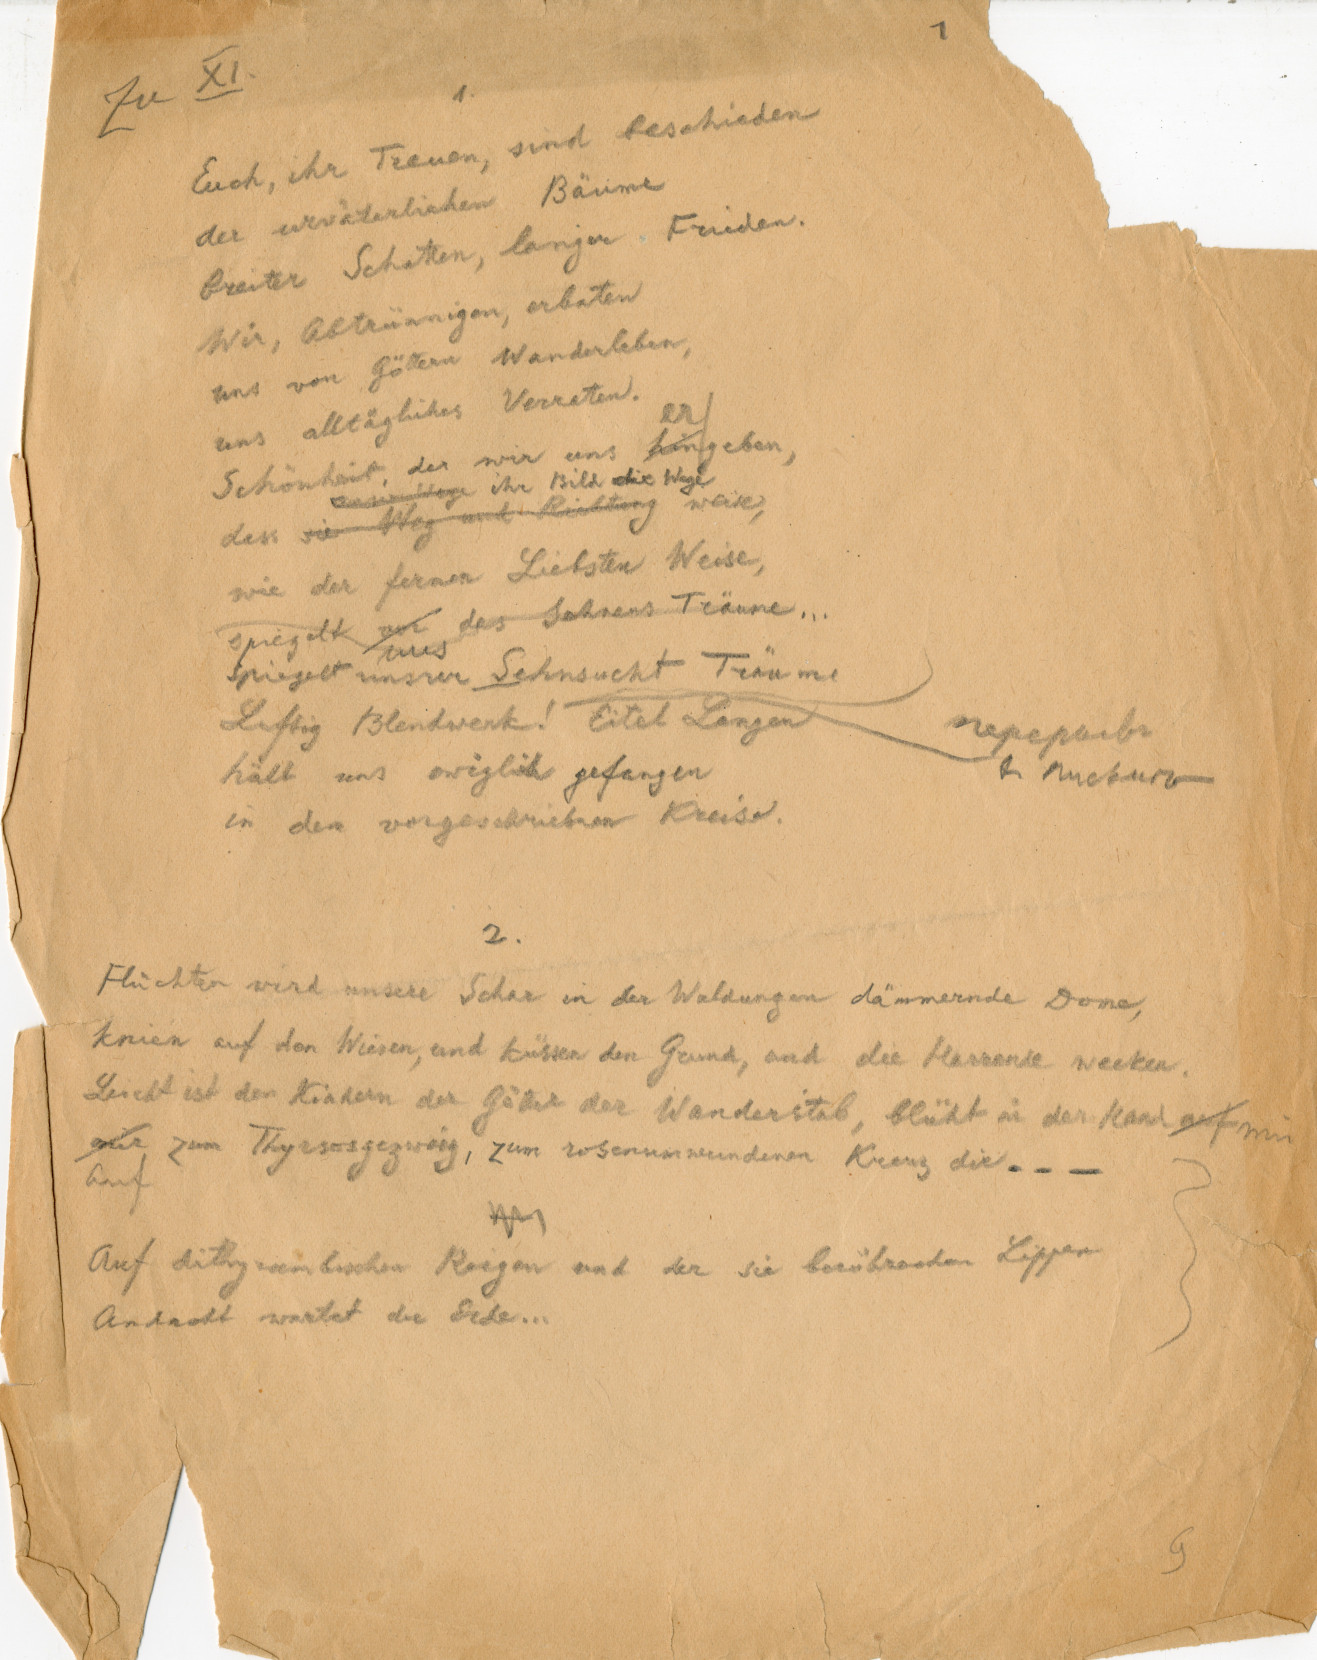 1
Zu XI.
1.
Euch, ihr Treuen, sind beschieden
der urväterlichen Bäume
breiter Schatten, langer Frieden.
Wir, Abtrünnigen, erbaten
uns von Göttern Wanderleben,
uns alltägliches Verraten.
er
Schönheit, der wir uns hingeben,
ihr Bild die Wege
dess sie Weg und Richtung weise,
wie der fernen Liebsten Weise,
spiegelt nur des Sehnens Träume...
uns
Spiegelt unsrer Sehnsucht Träume
Luftig Blendwerk! Eitel Langen
hält uns ewiglich gefangen
in dem vorgeschriebnen Kreise.
2.
Flüchten wird unsere Schar in der Waldungen dämmernde Dome,
Knien auf den Wiesen, und küssen den Grund, und die Harrende wecken.
Leicht ist den Kindern der Götter der Wanderstab, blüht in der Hand auf mir
mir zum Thyrsosgezweig, zum rosenumwundenen Kreuz die - - -
Auf
Auf dithyrambischen Reigen und der sie berührenden Lippen
Andacht wartet die Erde...